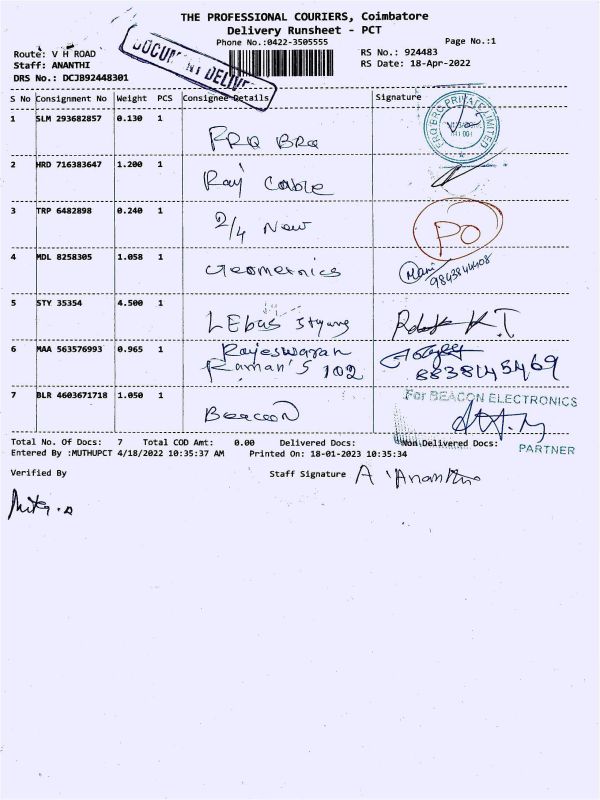 THE PROFESSIONAL COURIERS, Coimbatore
Delivery Runsheet - PCT
Phone No.:0422-3505555
Page No.:1
Route: V H ROAD
Staff: ANANTHI
DRS No.: DCJB92448301
RS No.: 924483
RS Date: 18-Apr-2022
S No Consignment No Weight PCS Consignee Details Signature
1 SLM 293682857 0.130 1 FRQ BRQ
FRQ BRQ PRIVATE LIMITED
2 HRD 716383647 1.200 1 Raj Cable
3 TRP 6482898 0.240 1 2/4 New PO
4 MDL 8258305 1.058 1 Geometrics Mani
9843844408
5 STY 35354 4.500 1 LEbas
6 MAA 563576993 0.965 1 Rajeswaran
Raman's 102 8838145469
7 BLR 4603671718 1.050 1 Beacon
For BEACON ELECTRONICS
PARTNER
Total No. Of Docs: 7 Total COD Amt: 0.00 Delivered Docs: Non Delivered Docs:
Entered By :MUTHUPCT 4/18/2022 10:35:37 AM Printed On: 18-01-2023 10:35:34
Verified By Staff Signature A Ananthi